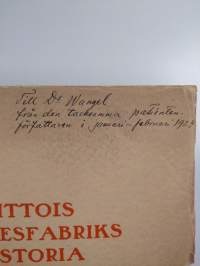 Till Dr Wangel
från den tacksamma patienten-
författaren i januari-februari 1924
ITTOIS
ESFABRIKS
ISTORIA